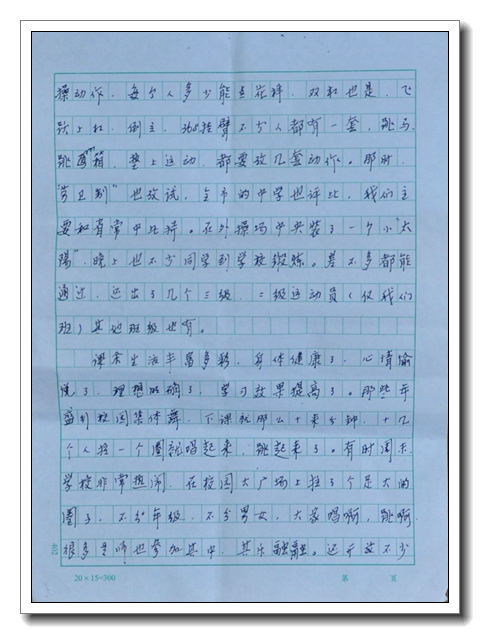 操动作，每个人多少能来花样，双杠也是，飞
跃上杠，倒立，挂臂不少人都有一套，跳马
跳箱，垫上运动，都要放几套动作。那时
"劳卫制"也考试，全市的中学也评比，我们主
要和省常中比拼。在外操场中央装了一个小"太
阳"，晚上也不少同学到学校锻炼。差不多都能
通过，还出了几个三级，二级运动员（仅我们
班）其他班级也有。
课余生活丰富多彩，身体健康了，心情愉
悦了，理想明确了，学习效果提高了。那些年
盛行校园集体舞，下课就那么十来分钟，十几
个人拉一个圈就唱起来，跳起来了。有时周末
学校非常热闹，在校园大广场上拉了个是大的
圈子，不分年级，不分男女，大家唱啊，跳啊
很多老师也参加其中，其乐融融。还开放不少
20×15=300
第 页